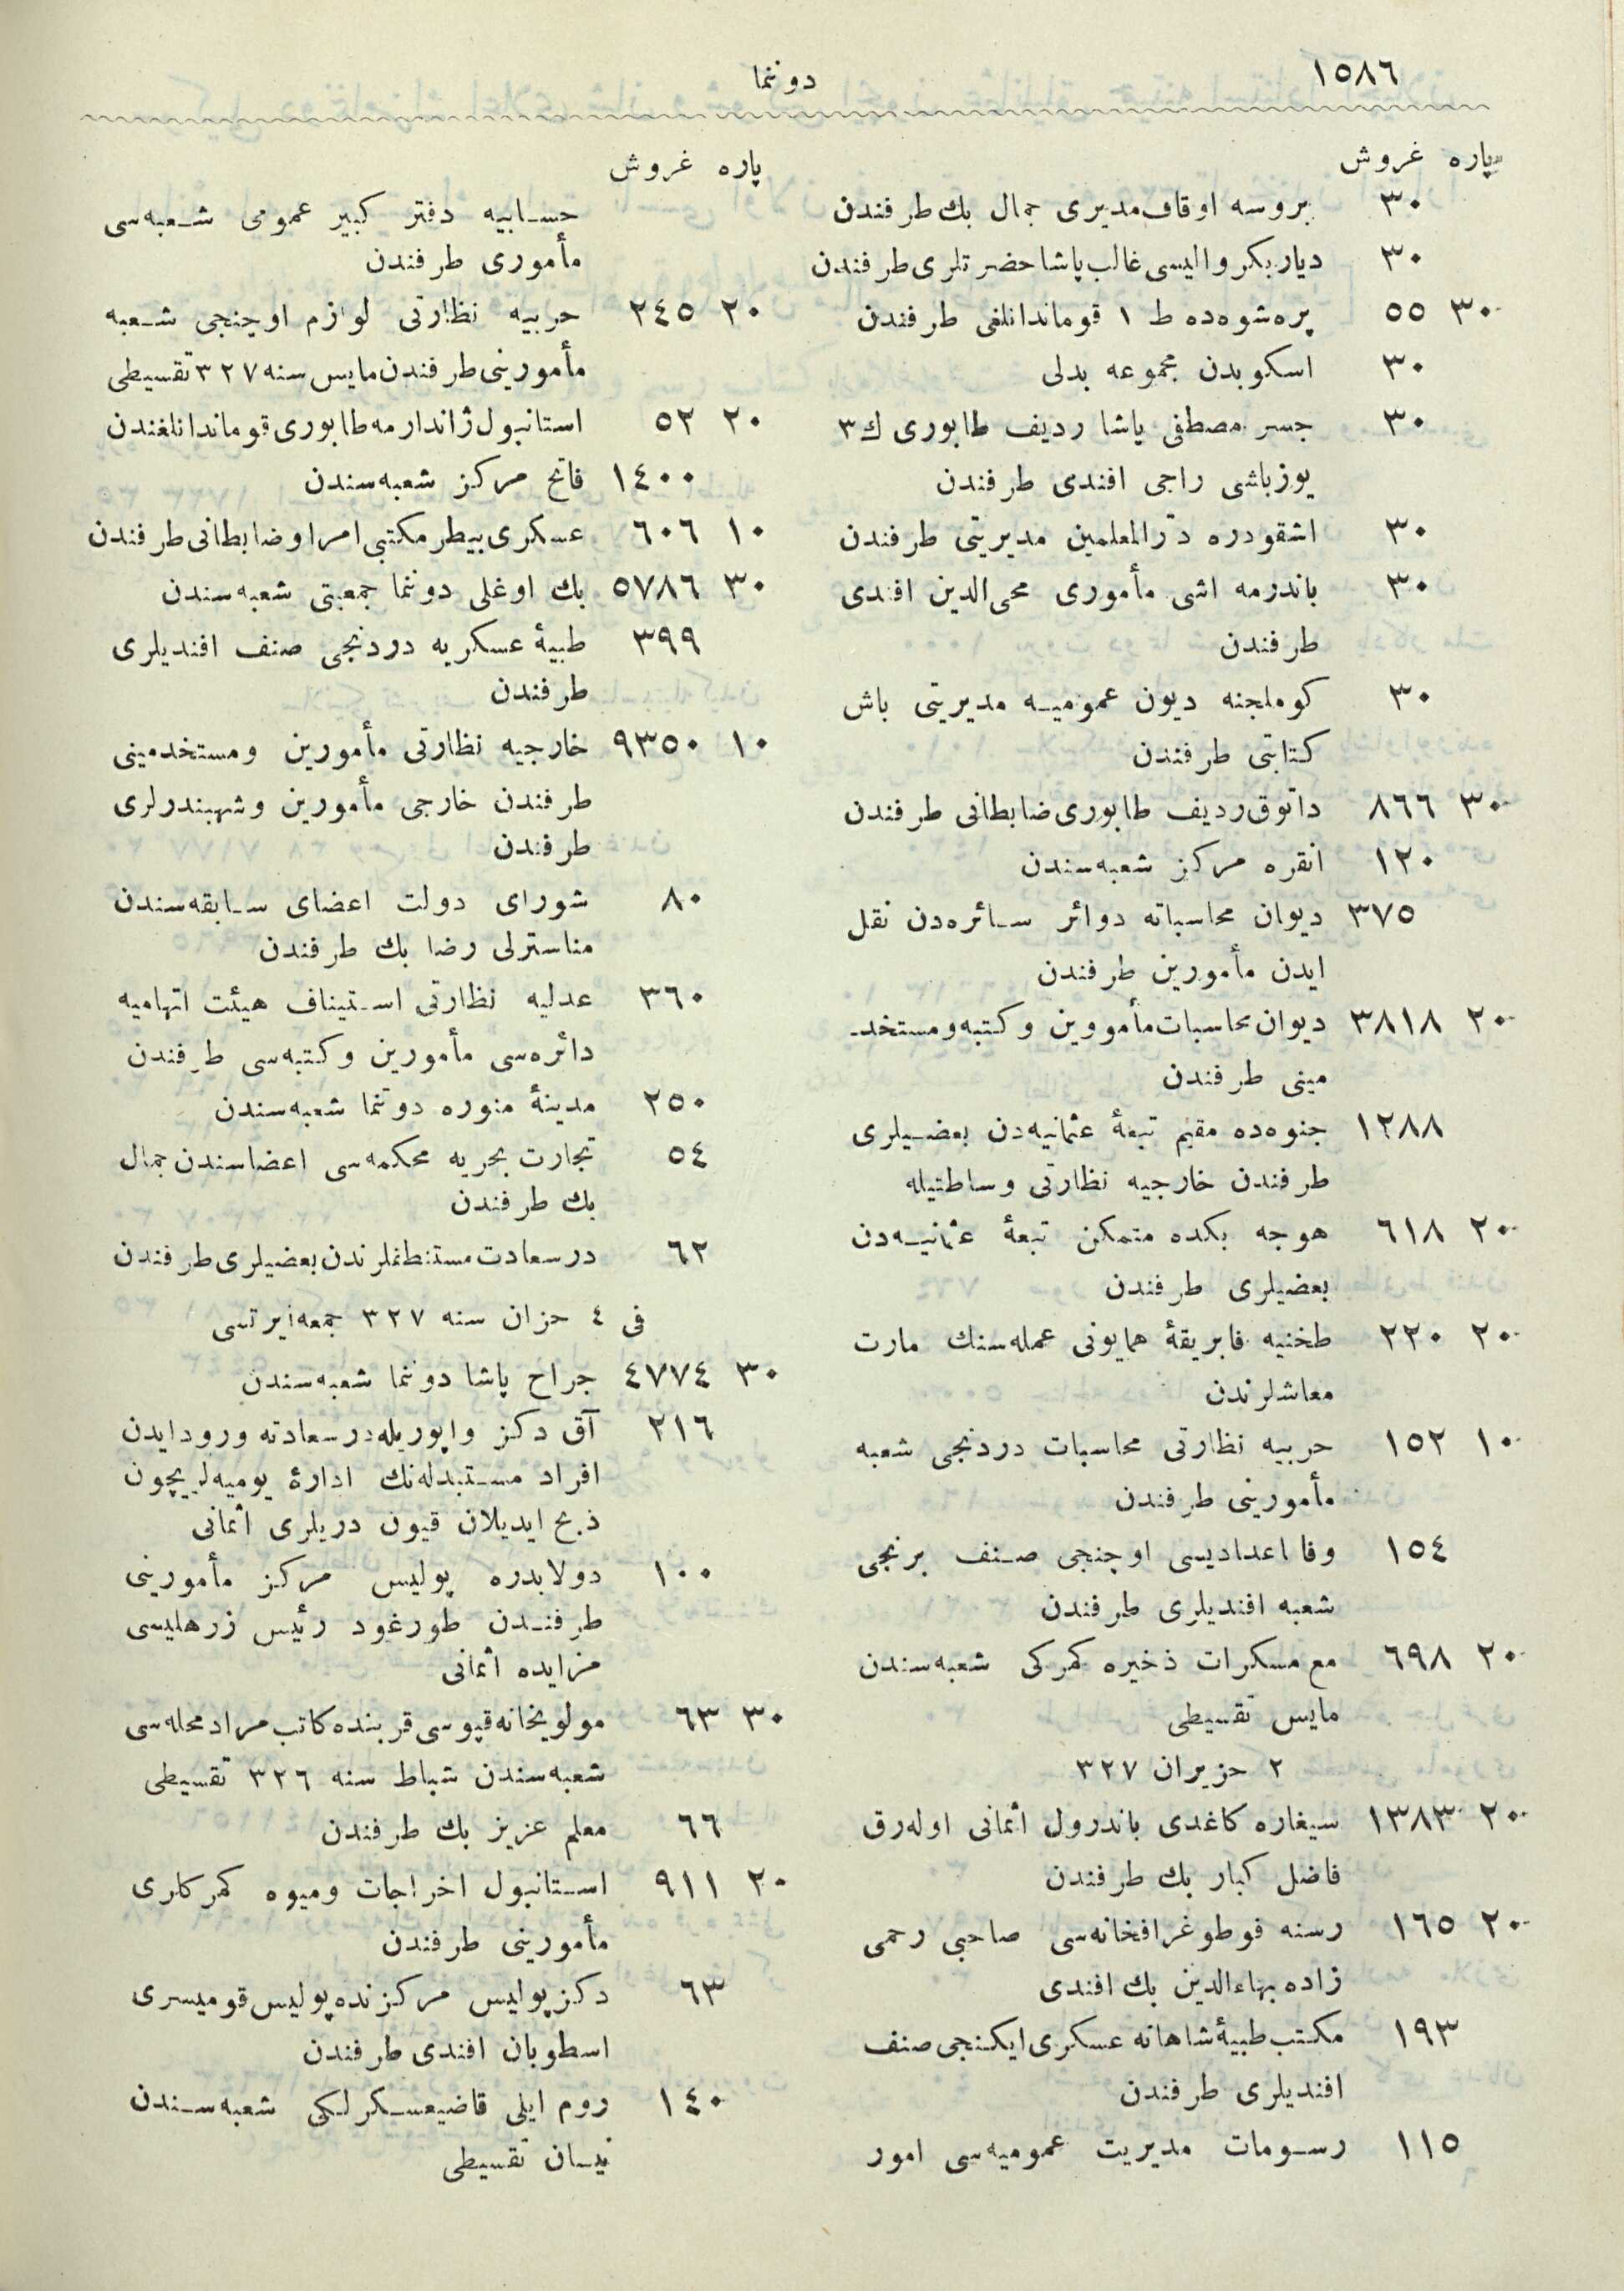 ١٥٨٦
دوننما
پاره غروش
٣٠ بروسه اوقاف مديرى جمال بك طرفندن
٣٠ دياربكر واليسى غالب پاشا حضرتلرى طرفندن
٣٠ ٥٥ پره‌شوه‌ده ط ١ قوماندانلغى طرفندن
٣٠ اسكوبدن مجموعه بدلى
٣٠ جسر مصطفى پاشا رديف طابورى ك ٣
يوزباشى راجى افندى طرفندن
٣٠ اشقودره دارالمعلمين مديريتى طرفندن
٣٠ باندرمه اشى مأمورى محى‌الدين افندى
طرفندن
٣٠ كوملجنه ديون عموميه مديريتى باش
كتابتى طرفندن
٣٠ ٨٦٦ داتوق رديف طابورى ضابطانى طرفندن
١٢٠ انقره مركز شعبه‌سندن
٣٧٥ ديوان محاسباته دوائر سائره‌دن نقل
ايدن مأمورين طرفندن
٢٠ ٣٨١٨ ديوان محاسبات مأمووين وكتبه ومستخد-
مينى طرفندن
١٢٨٨ جنوه‌ده مقيم تبعۀ عثمانيه‌دن بعضيلرى
طرفندن خارجيه نظارتى وساطتيله
٢٠ ٦١٨ هوجه بكده متمكن تبعۀ عثمانيه‌دن
بعضيلرى طرفندن
٢٠ ٢٢٠ طخنيه فابريقۀ همايونى عمله‌سنك مارت
معاشلرندن
١٠ ١٥٢ حربيه نظارتى محاسبات دردنجى شعبه
مأمورينى طرفندن
١٥٤ وفا اعداديسى اوچنجى صنف برنجى
شعبه افنديلرى طرفندن
٢٠ ٦٩٨ مع مسكرات ذخيره كمركى شعبه‌سندن
مايس تقسيطى
٢ حزيران ٣٢٧
٢٠ ١٣٨٣ سيغاره كاغدى باندرول اثمانى اوله‌رق
فاضل كبار بك طرفندن
٢٠ ١٦٥ رسنه فوطوغرافخانه‌سى صاحبى رحمى
زاده بهاءالدين بك افندى
١٩٣ مكتب طبيۀ شاهانه عسكرى ايكنجى صنف
افنديلرى طرفندن
١١٥ رسومات مديريت عموميه‌سى امور
پاره غروش
حسابيه دفتر كبير عمومى شعبه‌سى
مأمورى طرفندن
٢٠ ٢٤٥ حربيه نظارتى لوازم اوچنجى شعبه
مأمورينى طرفندن مايس سنه ٣٢٧ تقسيطى
٢٠ ٥٢ استانبول ژاندارمه طابورى قوماندانلغندن
١٤٠٠ فاتح مركز شعبه‌سندن
١٠ ٦٠٦ عسكرى بيطر مكتبى امرا وضابطانى طرفندن
٣٠ ٥٧٨٦ بك اوغلى دوننما جمعيتى شعبه‌سندن
٣٩٩ طبيۀ عسكريه دردنجى صنف افنديلرى
طرفندن
١٠ ٩٣٥٠ خارجيه نظارتى مأمورين ومستخدمينى
طرفندن خارجى مأمورين وشهبندرلرى
طرفندن
٨٠ شوراى دولت اعضاى سابقه‌سندن
مناسترلى رضا بك طرفندن
٣٦٠ عدليه نظارتى استيناف هيئت اتهاميه
دائره‌سى مأمورين وكتبه‌سى طرفندن
٢٥٠ مدينۀ منوره دوننما شعبه‌سندن
٥٤ تجارت بحريه محكمه‌سى اعضاسندن جمال
بك طرفندن
٦٢ درسعادت مستنطقلرندن بعضيلرى طرفندن
فى ٤ حزان سنه ٣٢٧ جمعه‌ايرتسى
٣٠ ٤٧٧٤ جراح پاشا دوننما شعبه‌سندن
٢١٦ آق دكز واپوريله درسعادته ورود ايدن
افراد مستبدله‌نك ادارۀ يوميه‌لريچون
ذبح ايديلان قيون دريلرى اثمانى
١٠٠ دولابدره پوليس مركز مأمورينى
طرفندن طورغود رئيس زرهليسى
مزايده اثمانى
٣٠ ٦٣ مولويخانه قپوسى قربنده كاتب مراد محله‌سى
شعبه‌سندن شباط سنه ٣٢٦ تقسيطى
٦٦ معلم عزيز بك طرفندن
٢٠ ٩١١ استانبول اخراجات وميوه كمركلرى
مأمورينى طرفندن
٦٣ دكز پوليس مركزنده پوليس قوميسرى
اسطوبان افندى طرفندن
١٤٠ روم ايلى قاضيعسكرلكى شعبه‌سندن
نيسان تقسيطى